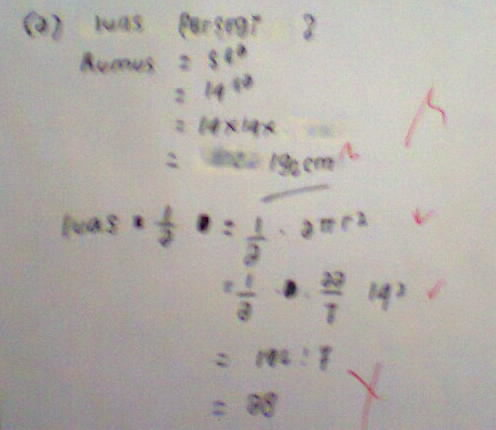 (2) luas persegi ?
Rumus = s²
= 14²
= 14x14x
= 196cm
luas • 1/2 = 1/2 . 2πr²
= 1/2 . 22/7 14²
= : 7
= 28